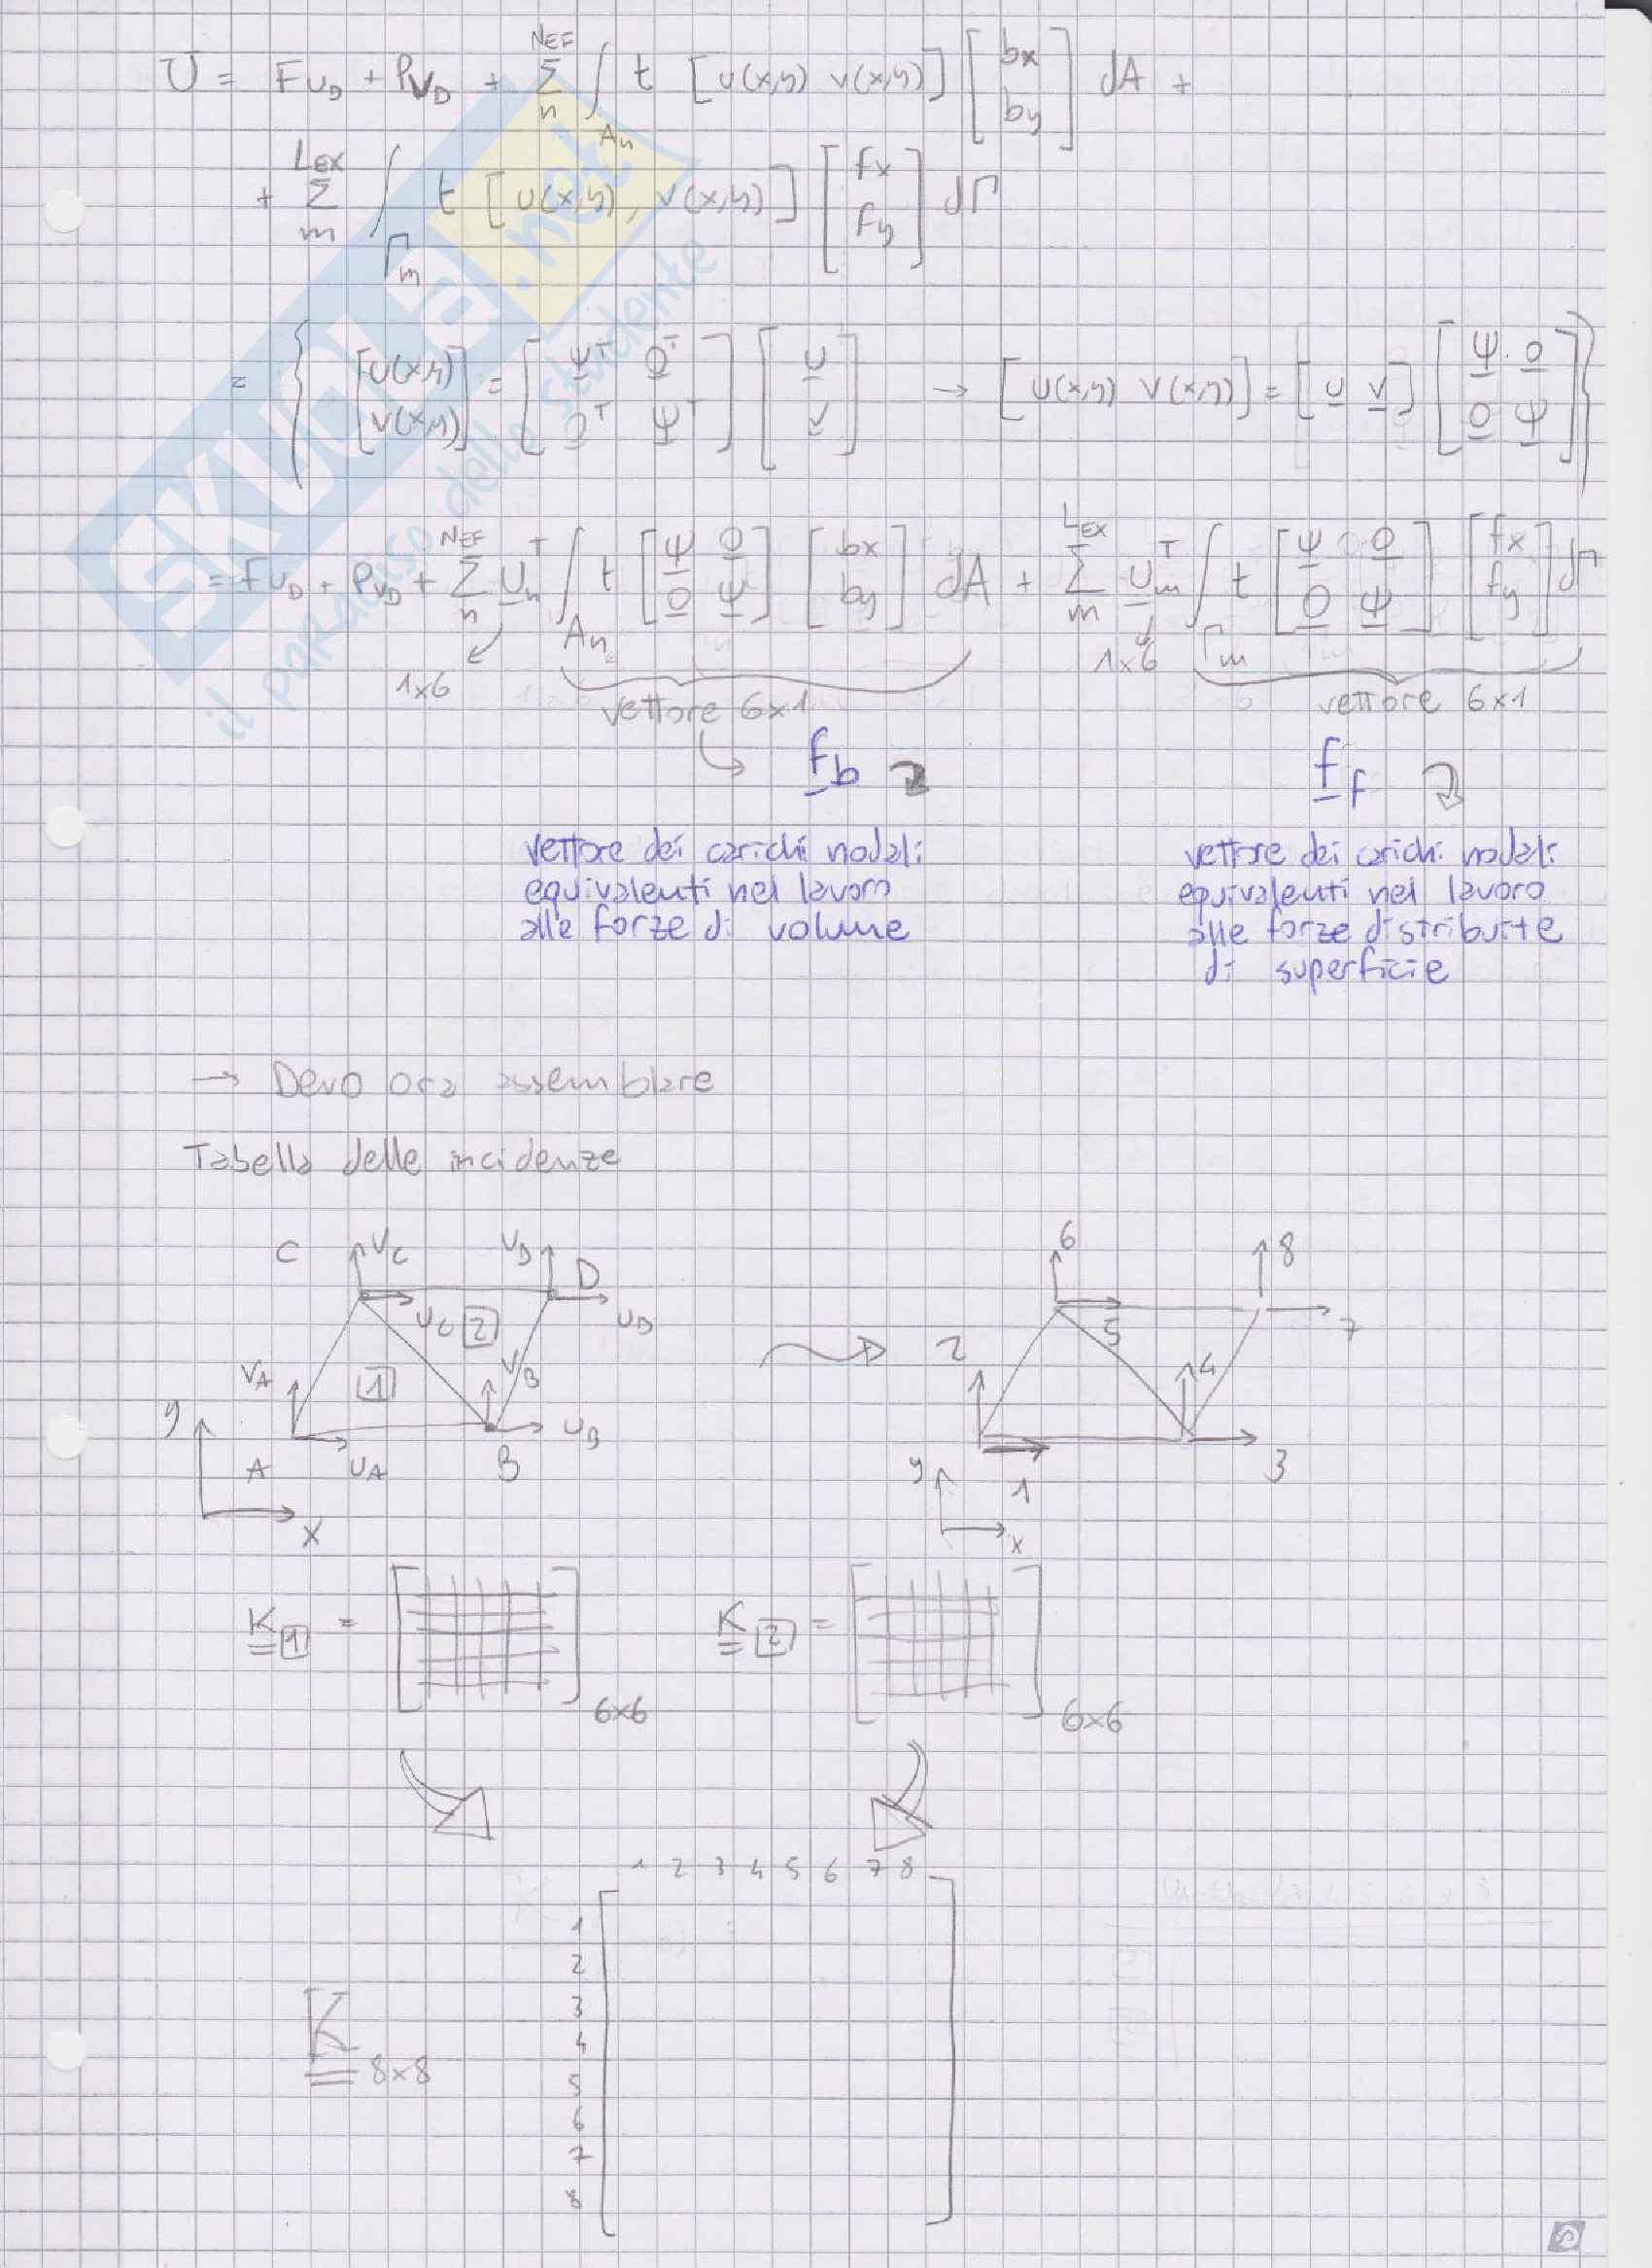 U = F u_D + P v_D + Σ_n^{NEF} ∫_{An} t [u(x,y) v(x,y)] [bx by] dA +
+ Σ_m^{LEX} ∫_{Γm} t [u(x,y), v(x,y)] [fx fy] dΓ
= { [u(x,y) v(x,y)] = [Ψ^T 0^T 0^T Ψ^T] [U V] → [u(x,y) v(x,y)] = [U V] [Ψ 0 0 Ψ] }
= F u_D + P v_D + Σ_n^{NEF} U_n^T ∫_{An} t [Ψ 0 0 Ψ] [bx by] dA + Σ_m^{LEX} U_m^T ∫_{Γm} t [Ψ 0 0 Ψ] [fx fy] dΓ
1x6 vettore 6x1 1x6 vettore 6x1
f_b f_f
vettore dei carichi nodali
equivalenti nel lavoro
alle forze di volume
vettore dei carichi nodali
equivalenti nel lavoro
alle forze distribuite
di superficie
→ Devo ora assemblare
Tabella delle incidenze
C v_C v_D D
u_C 2 u_D
v_A 1 v_B
y A u_A B u_B
x
6 8
5 7
2 4
y 1 3
x
K_1 = 6x6
K_2 = 6x6
1 2 3 4 5 6 7 8
1
2
3
4
5
6
7
8
K 8x8
SKUOLA.net
il paradiso dello studente